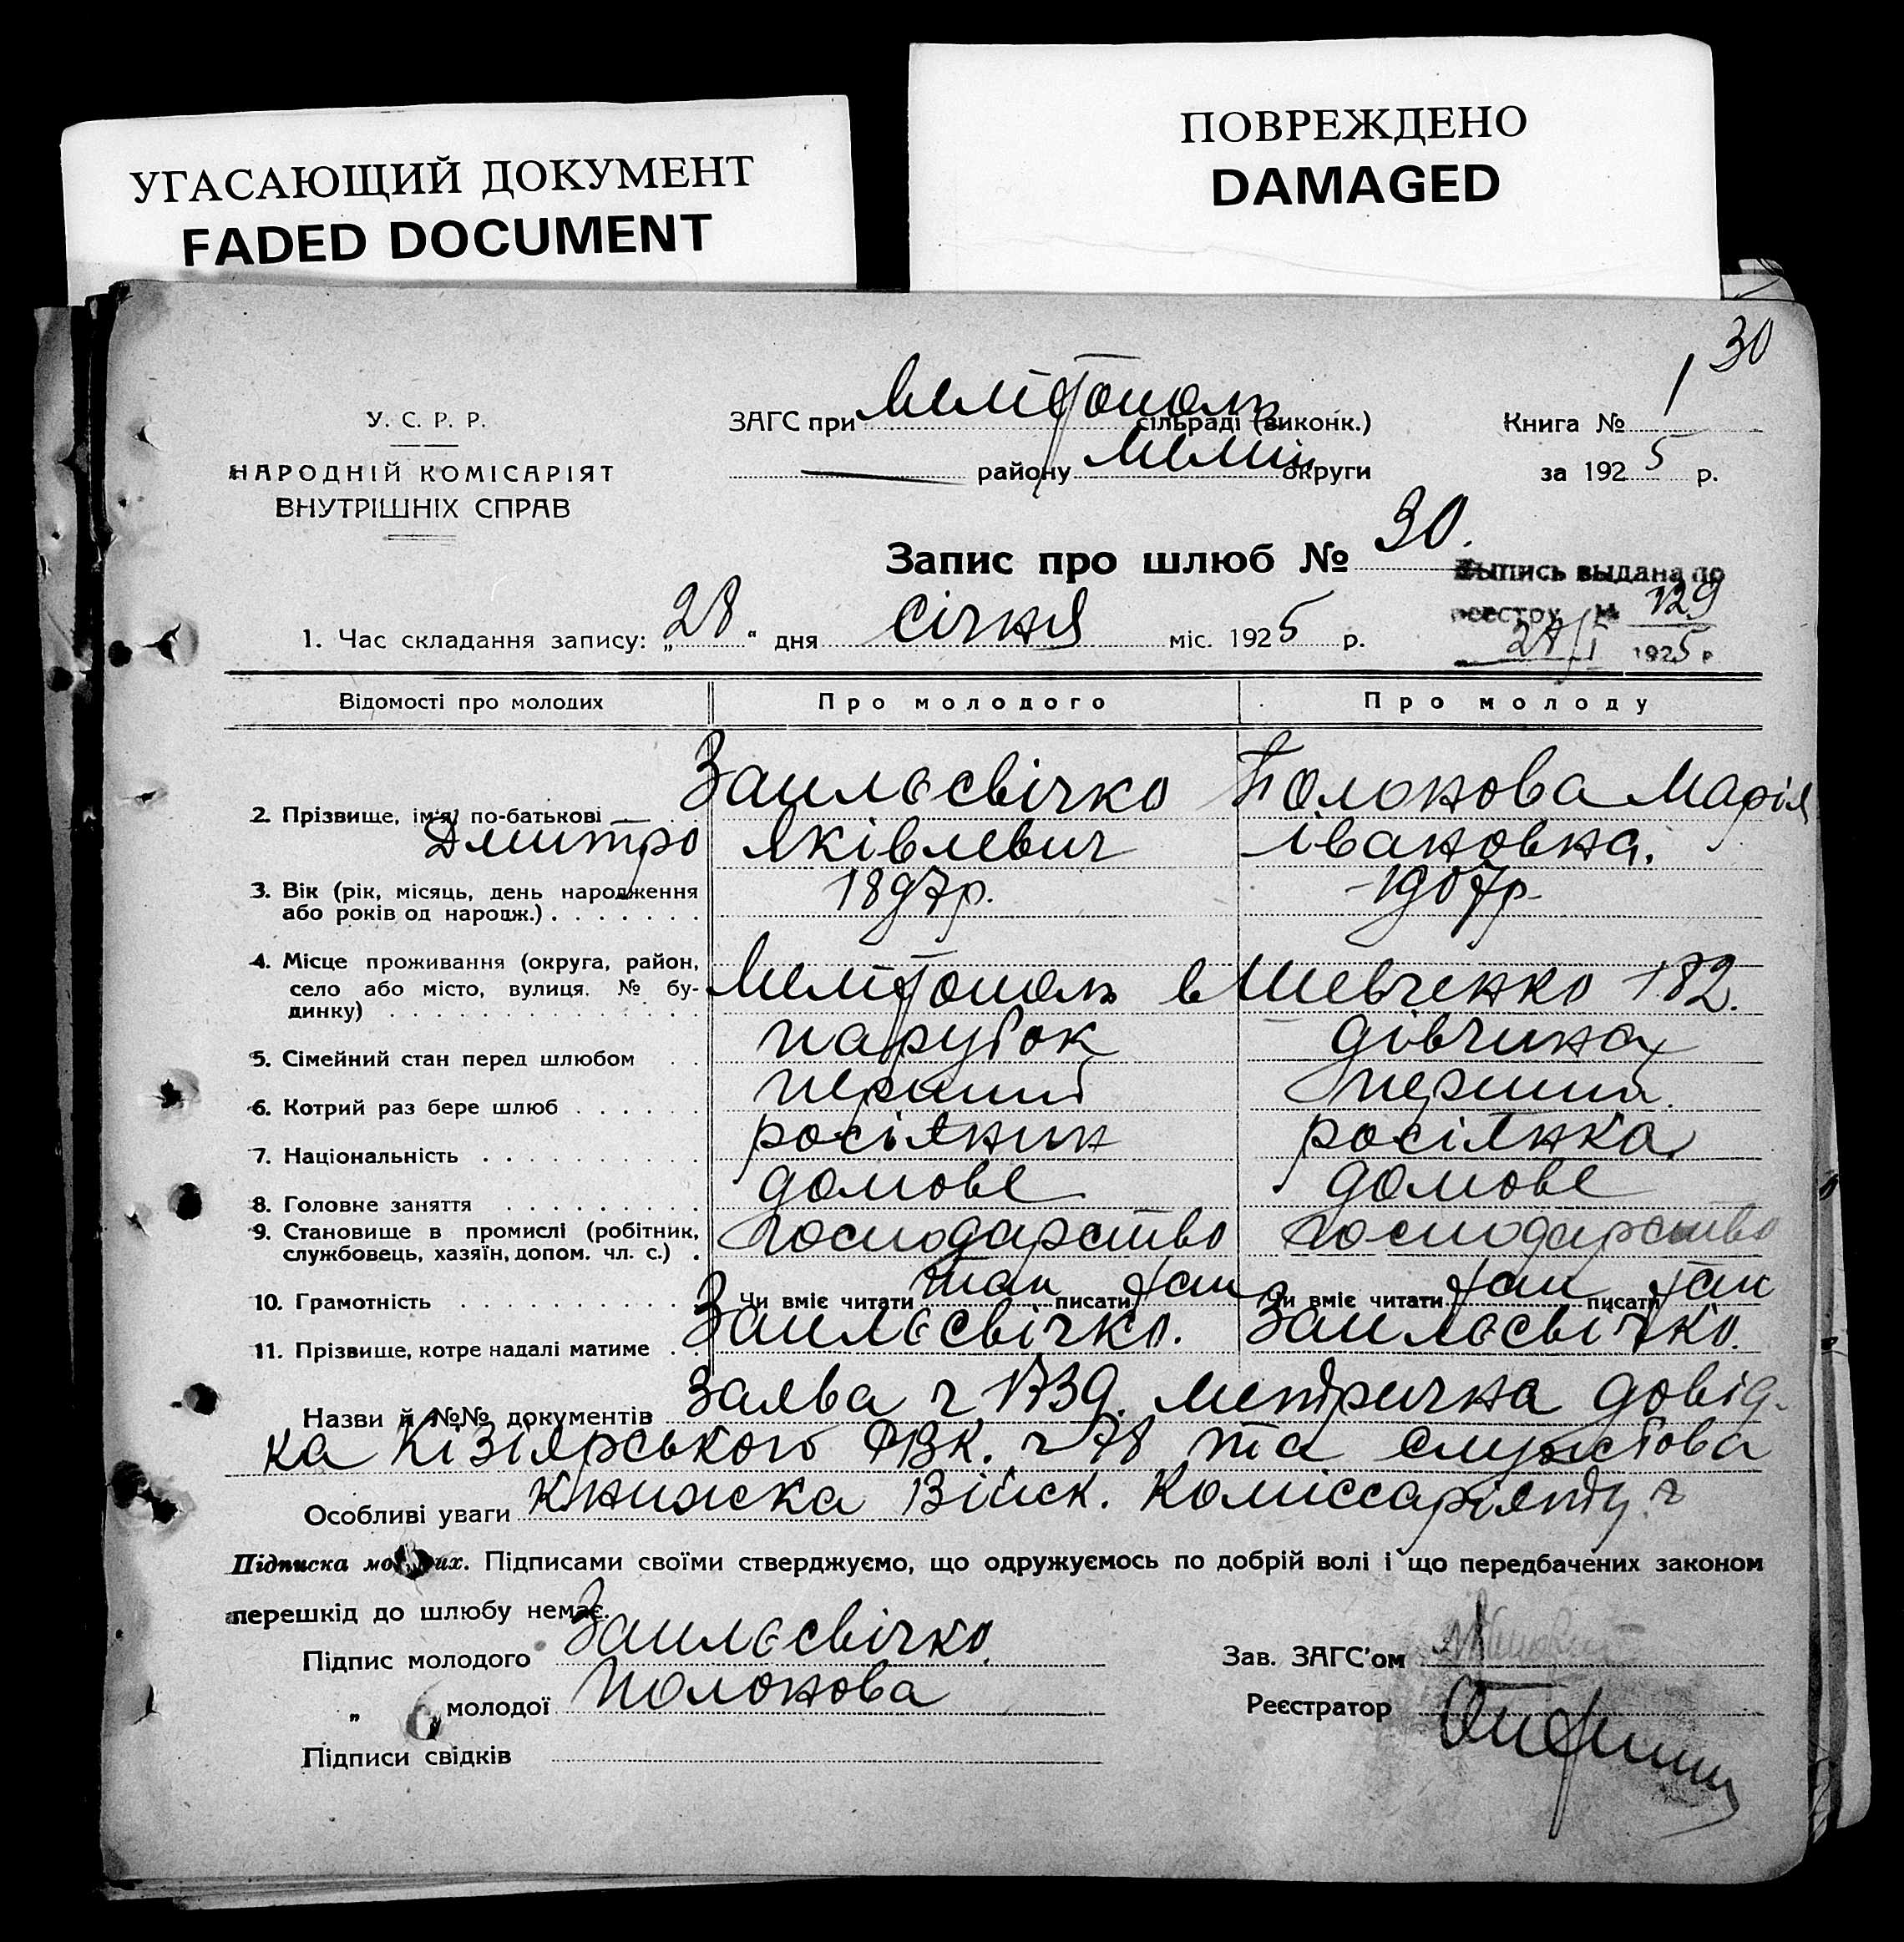 УГАСАЮЩИЙ ДОКУМЕНТ
FADED DOCUMENT
ПОВРЕЖДЕНО
DAMAGED
30
У. С. Р. Р.
НАРОДНІЙ КОМІСАРІЯТ
ВНУТРІШНІХ СПРАВ
ЗАГС при Мелітополь сільраді (виконк.)
району Меліт округи
Книга № 1
за 1925 р.
Запис про шлюб № 30.
Выпись выдана по
реестру № 129
28/I 1925 р
1. Час складання запису: „28" дня січня міс. 1925 р.
Відомості про молодих Про молодого Про молоду
2. Прізвище, ім'я, по-батькові Заплюсвічко Полонова Марія
Дмитро Яківлевич Івановна.
3. Вік (рік, місяць, день народження
або років од народж.) 1897р. 1907р.
4. Місце проживання (округа, район,
село або місто, вулиця. № будинку) Мелітополь в Шевченко 182.
5. Сімейний стан перед шлюбом парубок дівчина
6. Котрий раз бере шлюб перший перший
7. Національність росіянин росіянка
8. Головне заняття домове домове
9. Становище в промислі (робітник,
службовець, хазяїн, допом. чл. с.) господарство господарство
10. Грамотність Чи вміє читати так писати так Чи вміє читати так писати так
11. Прізвище, котре надалі матиме Заплюсвічко. Заплюсвічко.
Назви й №№ документів Заява ч 1739. метрична довід-
ка Кізіярського РВК. ч 78 та службова
Особливі уваги книжка Війск. Коміссаріяту ч
Підписка молодих. Підписами своїми стверджуємо, що одружуємось по добрій волі і що передбачених законом
перешкід до шлюбу немає.
Підпис молодого Заплюсвічко
„ молодої Полонова
Підписи свідків
Зав. ЗАГС'ом
Реєстратор